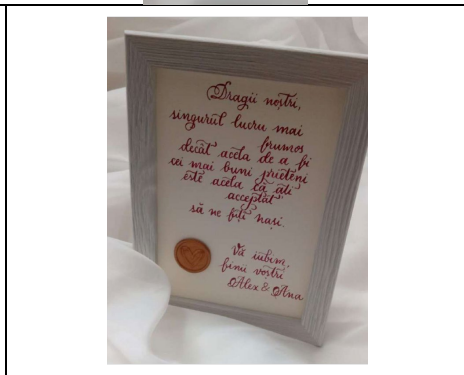 Dragii noștri,
singurul lucru mai
frumos
decât acela de a fi
cei mai buni prieteni
este acela că ați
acceptat
să ne fiți nași.
Vă iubim,
finii voștri
Alex & Ana